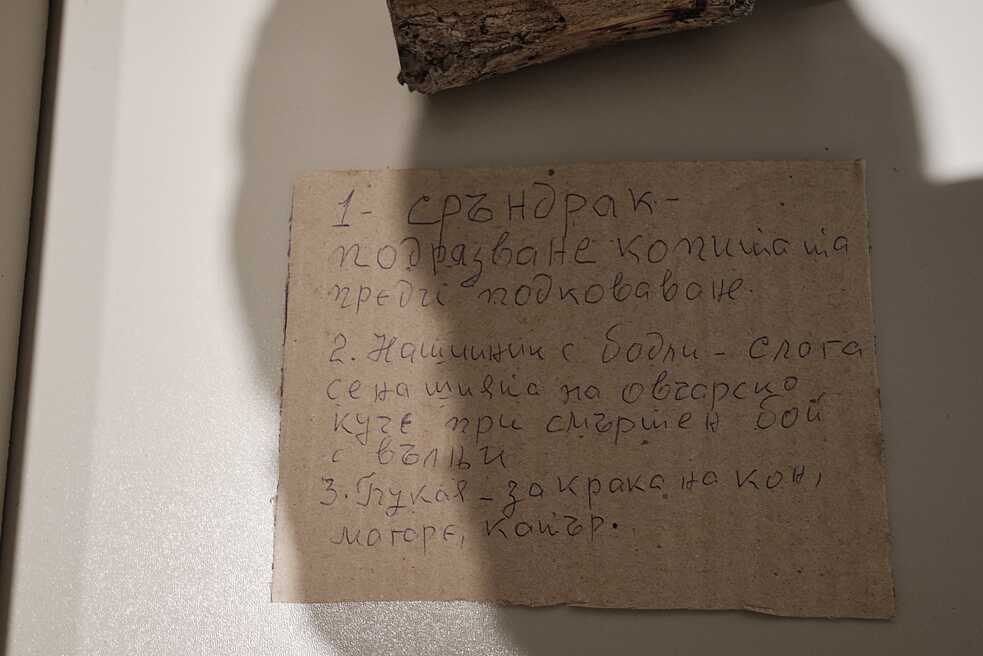 1- сръндрак-
подрязване копитата
преди подковаване.
2. Нашийник с бодли - слага
се на шията на овчарско
куче при смъртен бой
с вълци
3. Пукая - за крака на кон,
магаре, катър.